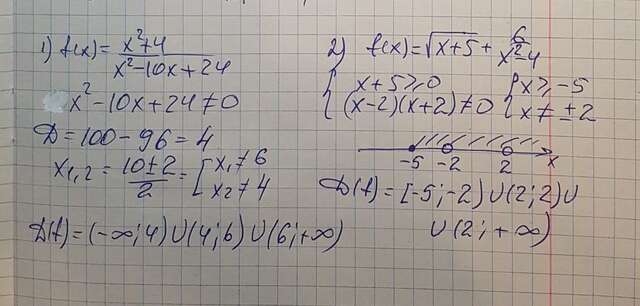 1) f(x) = (x²+4)/(x²-10x+24)
x²-10x+24≠0
D=100-96=4
x₁,₂ = (10±2)/2 = [x₁≠6
x₂≠4
D(f)=(-∞;4)∪(4;6)∪(6;+∞)
2) f(x)=√(x+5) + 6/(x²-4)
{x+5≥0 {x≥-5
(x-2)(x+2)≠0 x≠±2
-5 -2 2 x
D(f)=[-5;-2)∪(2;2)∪
∪(2;+∞)